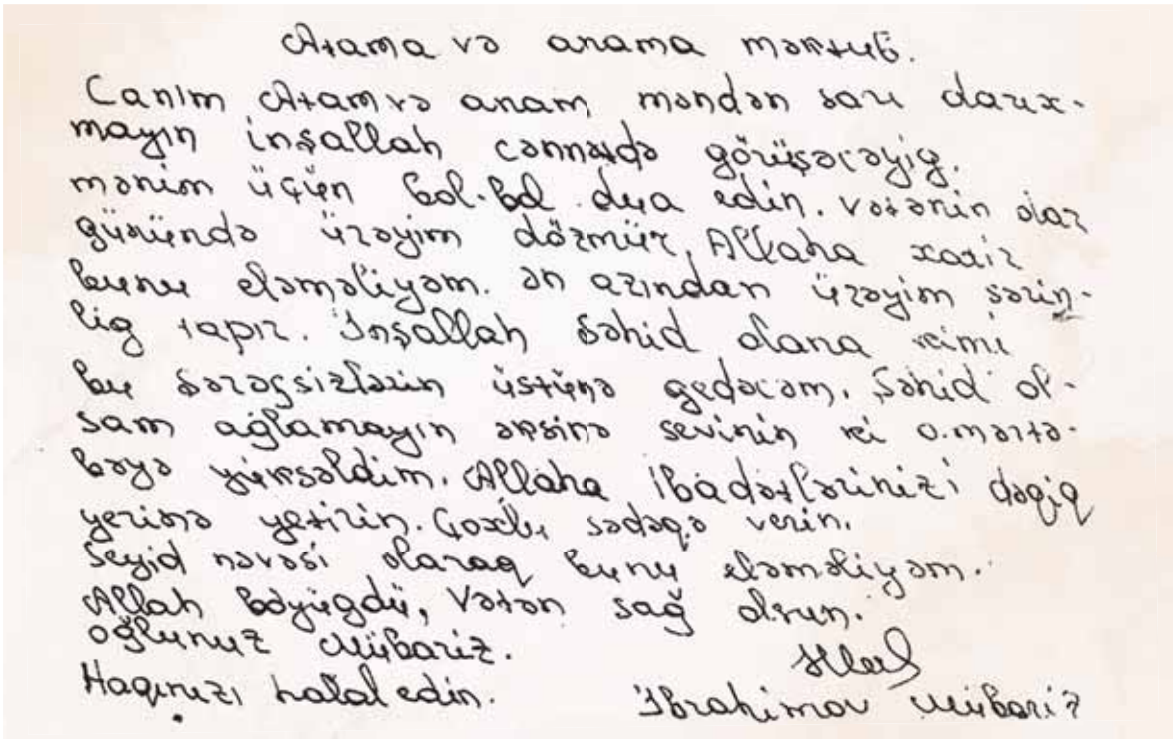 Atama və anama məktub.
Canım Atam və anam məndən sarı darıx-
mayın inşallah cənnətdə görüşəcəyig.
mənim üçün bol-bol dua edin. Vətənin dar
günündə ürəyim dözmür, Allaha xatir
bunu eləməliyəm. ən azından ürəyim sərin-
lig tapır. İnşallah Şəhid olana kimi
bu şərəfsizlərin üstünə gedəcəm. Şəhid ol-
sam ağlamayın əksinə sevinin ki o mərtə-
bəyə yüksəldim. Allaha ibadətlərinizi dəqiq
yerinə yetirin. Çoxlu sədəqə verin.
Seyid nəvəsi olaraq bunu eləməliyəm.
Allah böyügdü, Vətən sağ olsun.
oğlunuz Mübariz.
Haqınızı halal edin. İbrahimov Mübariz